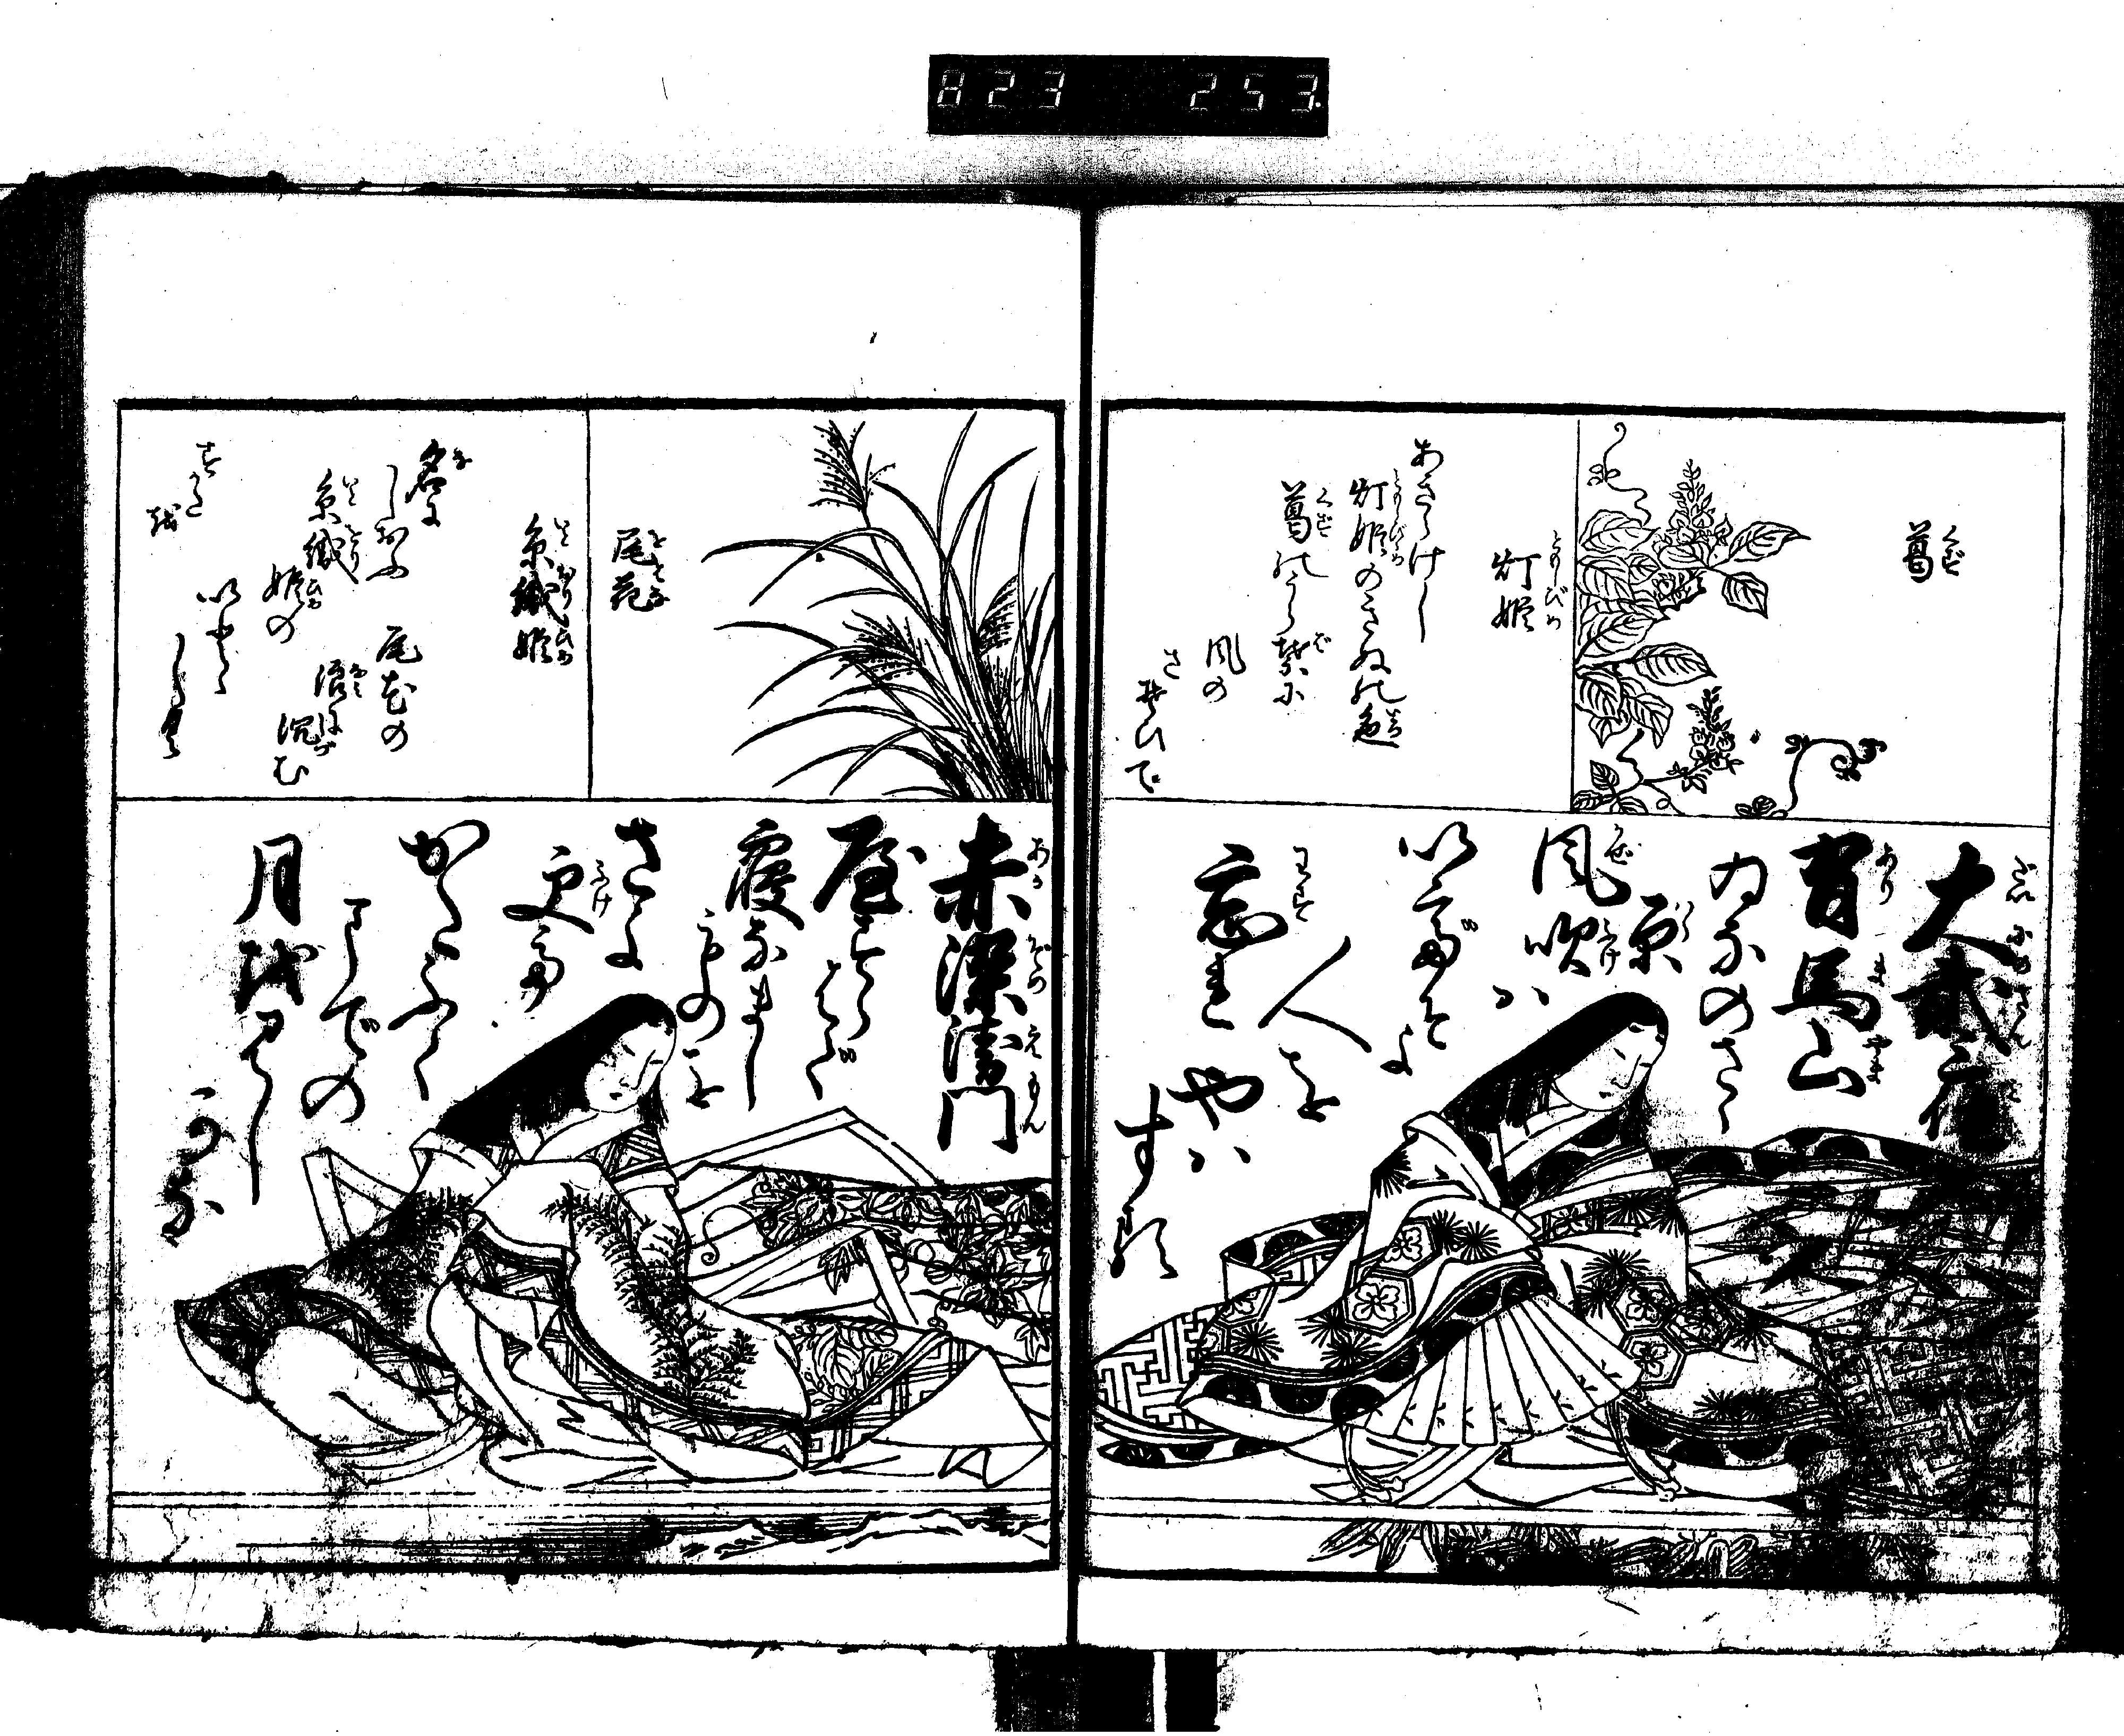 823 253.
葛
灯姫
あさらけし
灯姫のきぬの色
葛のうら葉に
風の
さそひて
大弐三位
有馬山
ゐなのさゝ
原
風吹
ハ
いでそよ
人を
忘れ
やハ
する
尾花
糸織姫
名に
しおふ
尾花の
糸織
姫の
赤染衛門
やすらはで
寝なまし
ものを
さよ
更て
かたふく
までの
月を見し
かな